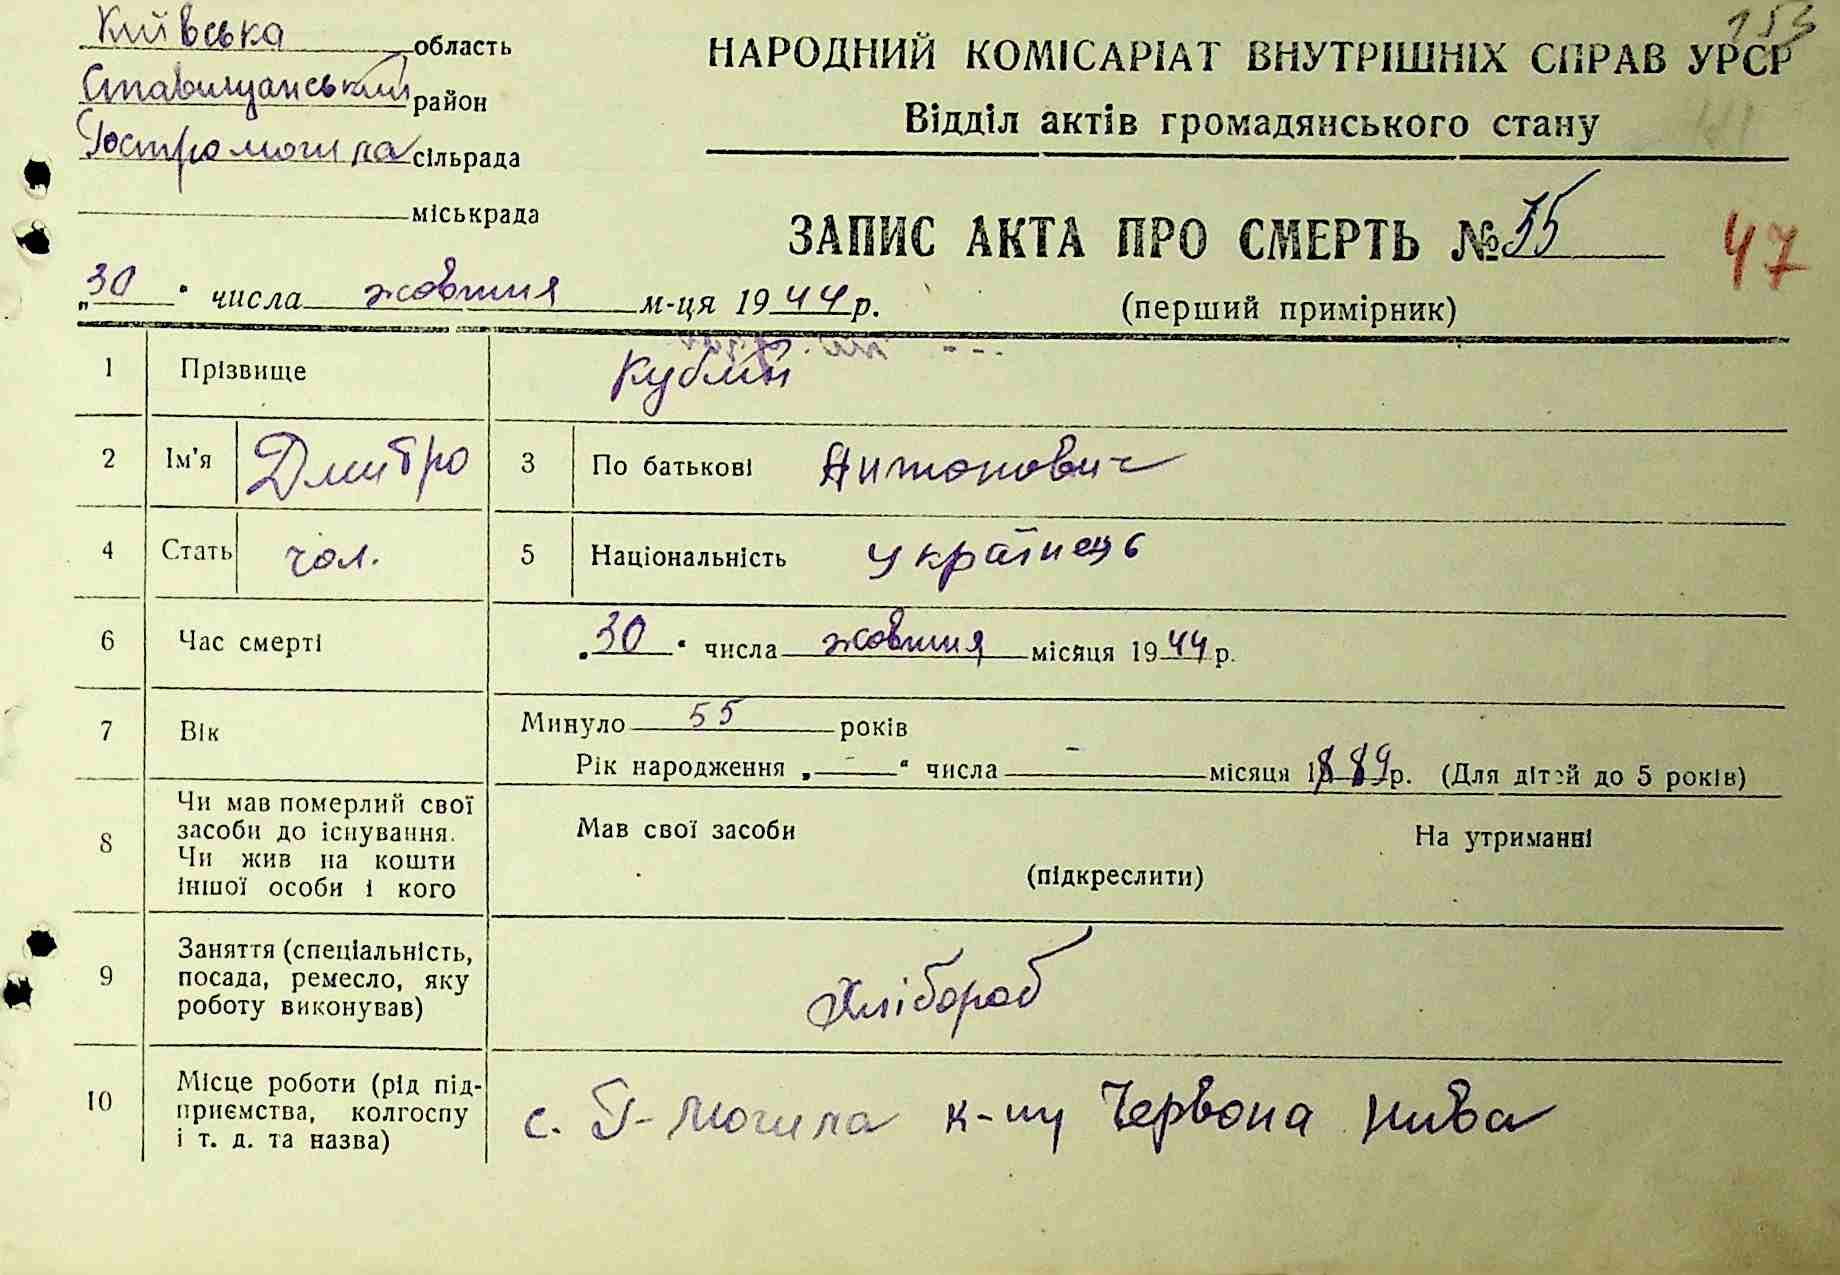 153
Київська область
НАРОДНИЙ КОМІСАРІАТ ВНУТРІШНІХ СПРАВ УРСР
Ставищанський район
Відділ актів громадянського стану
Гостромогила сільрада
міськрада
ЗАПИС АКТА ПРО СМЕРТЬ № 55
47
„30“ числа жовтня м-ця 1944 р.
(перший примірник)
1 Прізвище Кублій
2 Ім'я Дмитро 3 По батькові Антонович
4 Стать чол. 5 Національність Українець
6 Час смерті „30“ числа жовтня місяця 1944 р.
7 Вік Минуло 55 років
Рік народження „—“ числа — місяця 1889 р. (Для дітей до 5 років)
8 Чи мав померлий свої
засоби до існування.
Чи жив на кошти
іншої особи і кого
Мав свої засоби На утриманні
(підкреслити)
9 Заняття (спеціальність,
посада, ремесло, яку
роботу виконував)
Хлібороб
10 Місце роботи (рід під-
приємства, колгоспу
і т. д. та назва)
с. Г-Могила к-пу Червона Нива